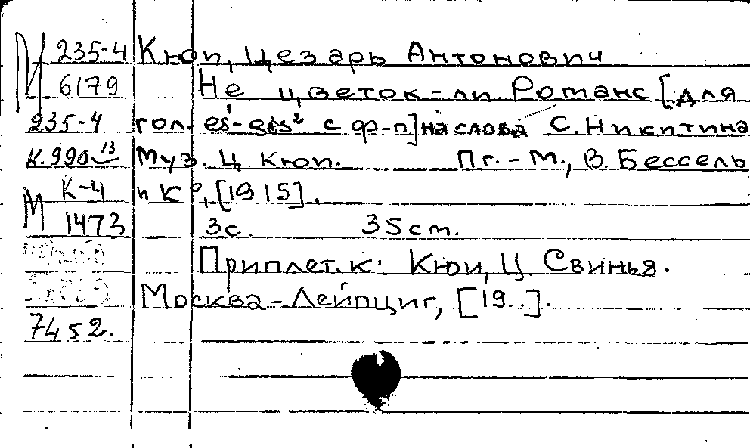 М 235-4 Кюи, Цезарь Антонович
6179 Не цветок-ли Романс [для
235-4 гол. es¹-gis² с ф-п] на слова С. Никитина
К.990 13 Муз. Ц Кюи. Пг.-М., В. Бессель
К-4 и К°, [1915].
М 1473 3с. 35см.
Приплет. к: Кюи, Ц. Свинья.
Москва-Лейпциг, [19..].
7452.